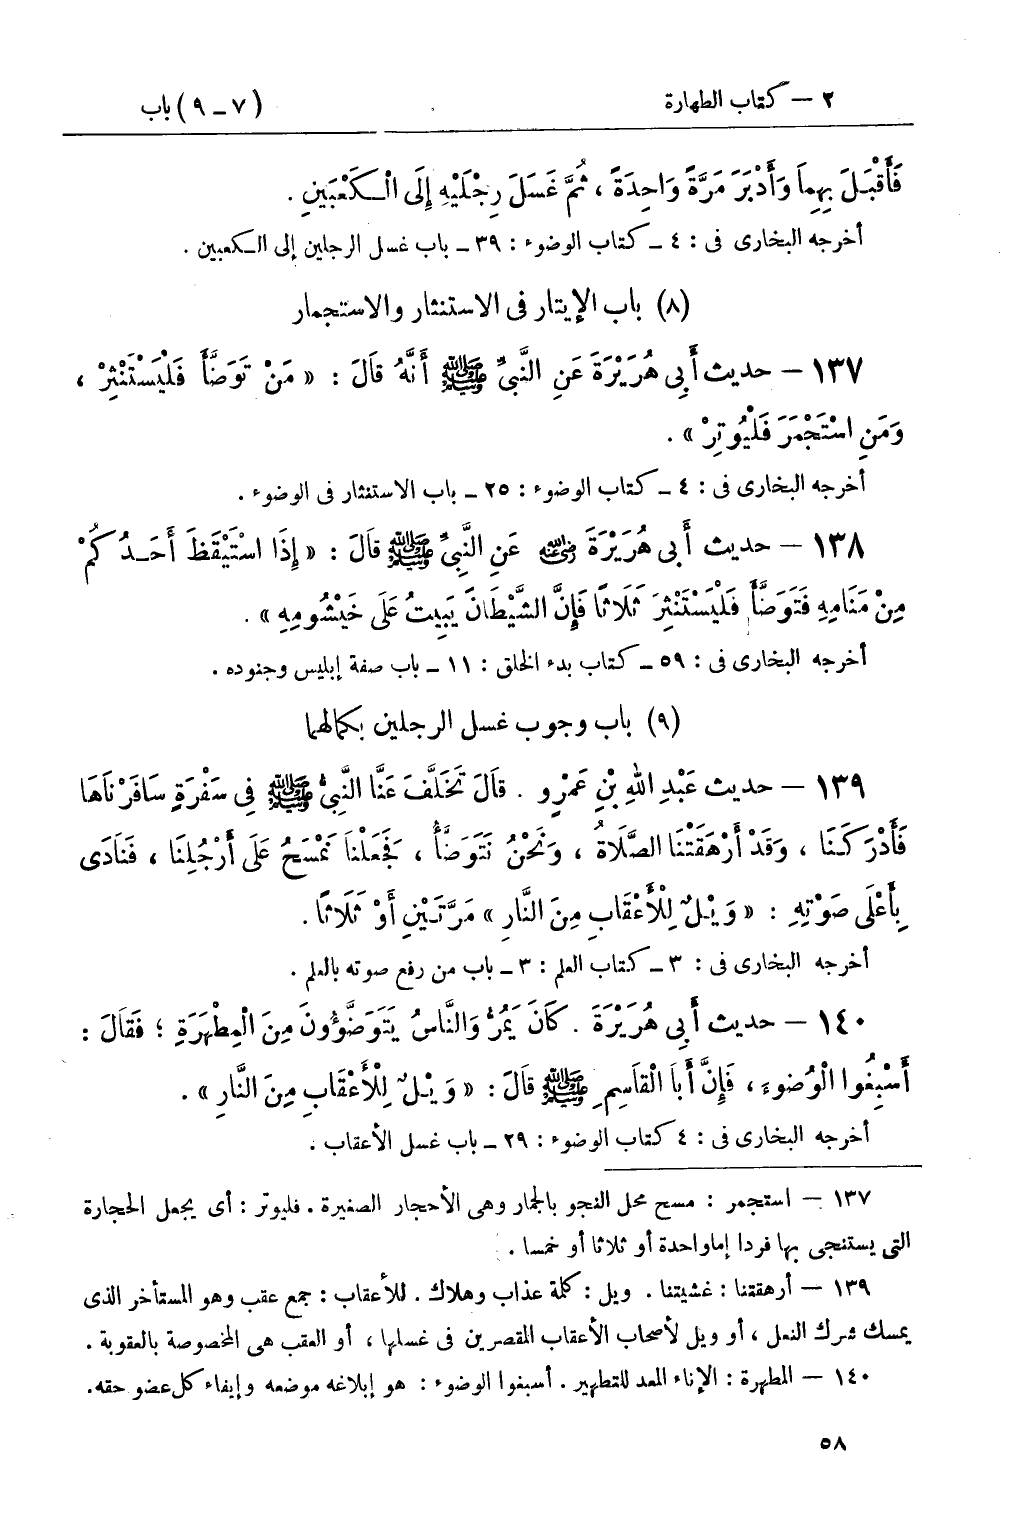 ٢ — كتاب الطهارة (٧ – ٩) باب
فَأَقْبَلَ بِهِمَا وَأَدْبَرَ مَرَّةً وَاحِدَةً ، ثُمَّ غَسَلَ رِجْلَيْهِ إِلَى الْكَعْبَيْنِ .
أخرجه البخارى فى : ٤ – كتاب الوضوء : ٣٩ – باب غسل الرجلين إلى الكعبين .
(٨) باب الإيتار فى الاستنثار والاستجمار
١٣٧ – حديث أَبِى هُرَيْرَةَ عَنِ النَّبِىِّ ﷺ أَنَّهُ قَالَ : « مَنْ تَوَضَّأَ فَلْيَسْتَنْثِرْ ،
وَمَنِ اسْتَجْمَرَ فَلْيُوتِرْ » .
أخرجه البخارى فى : ٤ – كتاب الوضوء : ٢٥ – باب الاستنثار فى الوضوء .
١٣٨ – حديث أَبِى هُرَيْرَةَ رضي الله عنه عَنِ النَّبِىِّ ﷺ قَالَ : « إِذَا اسْتَيْقَظَ أَحَدُكُمْ
مِنْ مَنَامِهِ فَتَوَضَّأَ فَلْيَسْتَنْثِرْ ثَلَاثًا فَإِنَّ الشَّيْطَانَ يَبِيتُ عَلَى خَيْشُومِهِ » .
أخرجه البخارى فى : ٥٩ – كتاب بدء الخلق : ١١ – باب صفة إبليس وجنوده .
(٩) باب وجوب غسل الرجلين بكمالهما
١٣٩ – حديث عَبْدِ اللهِ بْنِ عَمْرٍو . قَالَ تَخَلَّفَ عَنَّا النَّبِىُّ ﷺ فِى سَفْرَةٍ سَافَرْنَاهَا
فَأَدْرَكَنَا ، وَقَدْ أَرْهَقَتْنَا الصَّلَاةُ ، وَنَحْنُ نَتَوَضَّأُ ، فَجَعَلْنَا نَمْسَحُ عَلَى أَرْجُلِنَا ، فَنَادَى
بِأَعْلَى صَوْتِهِ : « وَيْلٌ لِلْأَعْقَابِ مِنَ النَّارِ » مَرَّتَيْنِ أَوْ ثَلَاثًا .
أخرجه البخارى فى : ٣ – كتاب العلم : ٣ – باب من رفع صوته بالعلم .
١٤٠ – حديث أَبِى هُرَيْرَةَ . كَانَ يَمُرُّ وَالنَّاسُ يَتَوَضَّؤُونَ مِنَ الْمِطْهَرَةِ ؛ فَقَالَ :
أَسْبِغُوا الْوُضُوءَ ، فَإِنَّ أَبَا الْقَاسِمِ ﷺ قَالَ : « وَيْلٌ لِلْأَعْقَابِ مِنَ النَّارِ » .
أخرجه البخارى فى : ٤ كتاب الوضوء : ٢٩ – باب غسل الأعقاب .
١٣٧ – استجمر : مسح محل النجو بالجمار وهى الأحجار الصغيرة . فليوتر : أى يجعل الحجارة
التى يستنجى بها فردا إما واحدة أو ثلاثا أو خمسا .
١٣٩ – أرهقتنا : غشيتنا . ويل : كلمة عذاب وهلاك . للأعقاب : جمع عقب وهو المستأخر الذى
يمسك شرك النعل ، أو ويل لأصحاب الأعقاب المقصرين فى غسلها ، أو العقب هى المخصوصة بالعقوبة .
١٤٠ – المطهرة : الإناء المعد للتطهير . أسبغوا الوضوء : هو إبلاغه موضعه وإيفاء كل عضو حقه.
٥٨